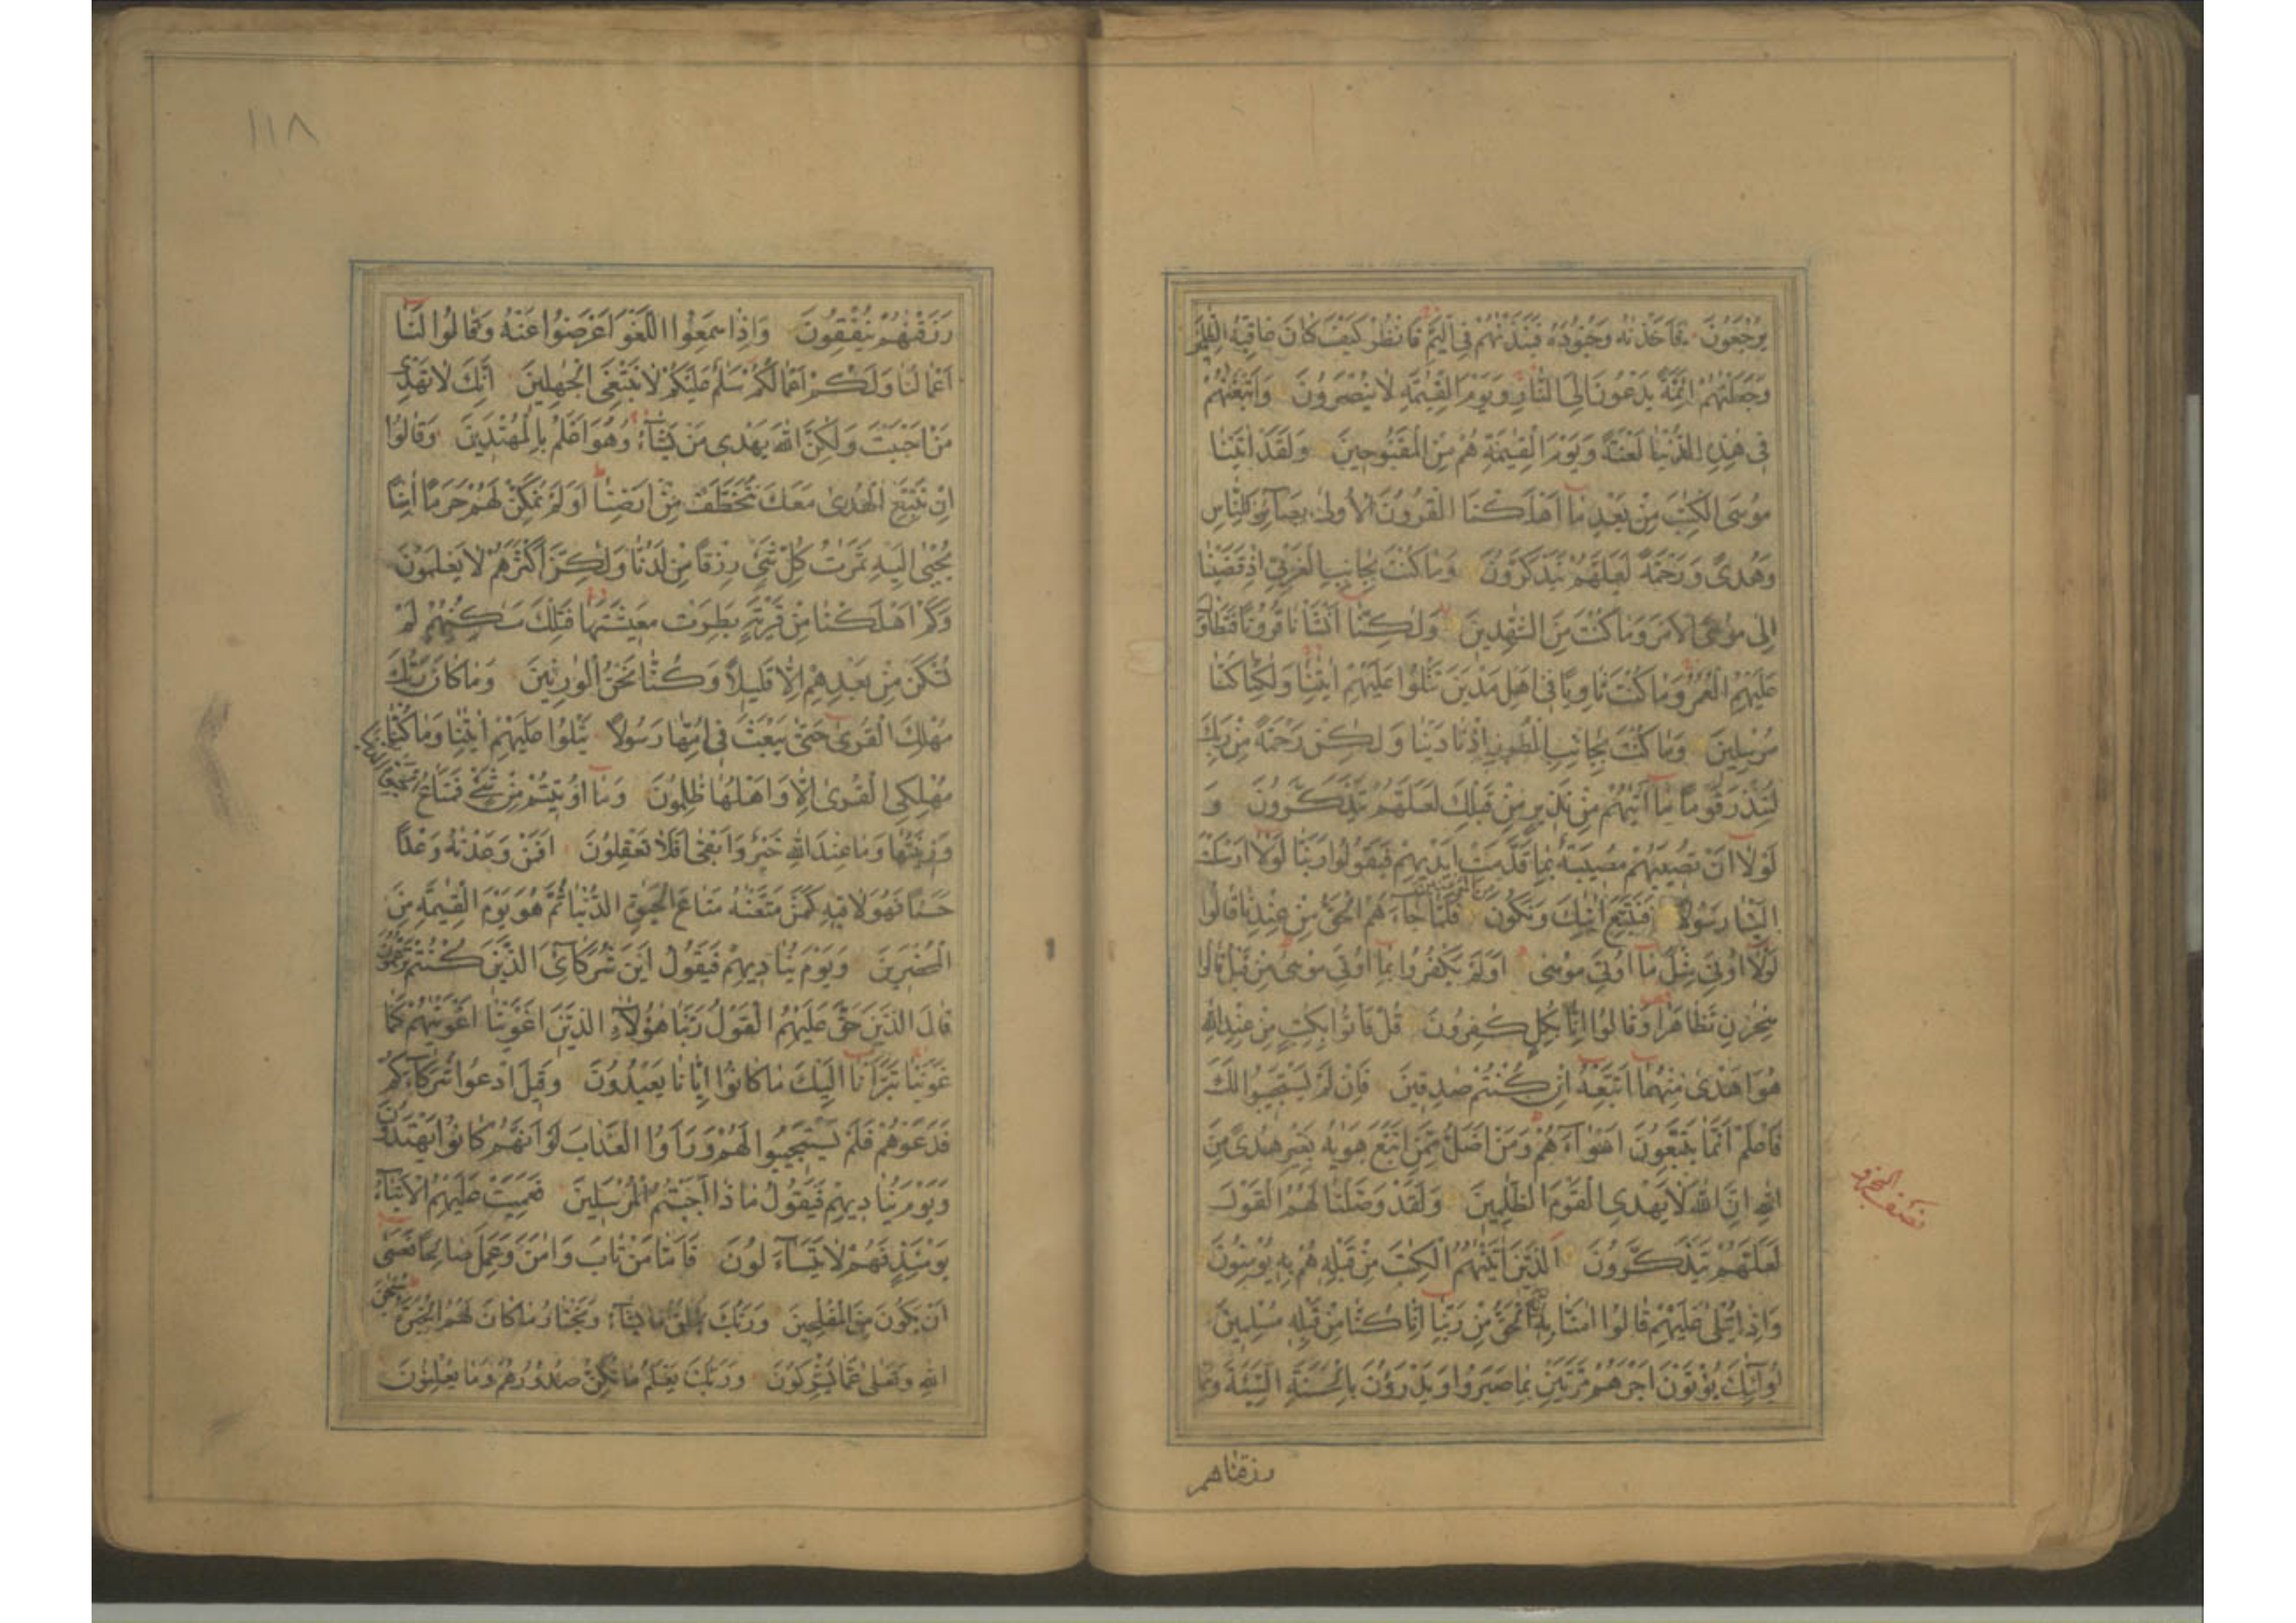 يَرْجِعُونَ فَاَخَذْنٰهُ وَجُنُودَهُ فَنَبَذْنٰهُمْ فِى الْيَمِّ فَانْظُرْ كَيْفَ كَانَ عَاقِبَةُ الظّٰلِمِينَ
وَجَعَلْنٰهُمْ اَئِمَّةً يَدْعُونَ اِلَى النَّارِ وَيَوْمَ الْقِيٰمَةِ لَا يُنْصَرُونَ وَاَتْبَعْنٰهُمْ
فِى هٰذِهِ الدُّنْيَا لَعْنَةً وَيَوْمَ الْقِيٰمَةِ هُمْ مِنَ الْمَقْبُوحِينَ وَلَقَدْ اٰتَيْنَا
مُوسَى الْكِتٰبَ مِنْ بَعْدِ مَا اَهْلَكْنَا الْقُرُونَ الْاُولٰى بَصَائِرَ لِلنَّاسِ
وَهُدًى وَرَحْمَةً لَعَلَّهُمْ يَتَذَكَّرُونَ وَمَا كُنْتَ بِجَانِبِ الْغَرْبِىِّ اِذْ قَضَيْنَا
اِلٰى مُوسَى الْاَمْرَ وَمَا كُنْتَ مِنَ الشّٰهِدِينَ وَلٰكِنَّا اَنْشَأْنَا قُرُونًا فَتَطَاوَلَ
عَلَيْهِمُ الْعُمُرُ وَمَا كُنْتَ ثَاوِيًا فِى اَهْلِ مَدْيَنَ تَتْلُوا عَلَيْهِمْ اٰيٰتِنَا وَلٰكِنَّا كُنَّا
مُرْسِلِينَ وَمَا كُنْتَ بِجَانِبِ الطُّورِ اِذْ نَادَيْنَا وَلٰكِنْ رَحْمَةً مِنْ رَبِّكَ
لِتُنْذِرَ قَوْمًا مَا اَتٰيهُمْ مِنْ نَذِيرٍ مِنْ قَبْلِكَ لَعَلَّهُمْ يَتَذَكَّرُونَ وَ
لَوْلَا اَنْ تُصِيبَهُمْ مُصِيبَةٌ بِمَا قَدَّمَتْ اَيْدِيهِمْ فَيَقُولُوا رَبَّنَا لَوْلَا اَرْسَلْتَ
اِلَيْنَا رَسُولًا فَنَتَّبِعَ اٰيٰتِكَ وَنَكُونَ مِنَ الْمُؤْمِنِينَ فَلَمَّا جَاءَهُمُ الْحَقُّ مِنْ عِنْدِنَا قَالُوا
لَوْلَا اُوتِىَ مِثْلَ مَا اُوتِىَ مُوسٰى اَوَلَمْ يَكْفُرُوا بِمَا اُوتِىَ مُوسٰى مِنْ قَبْلُ قَالُوا
سِحْرٰنِ تَظَاهَرَا وَقَالُوا اِنَّا بِكُلٍّ كٰفِرُونَ قُلْ فَأْتُوا بِكِتٰبٍ مِنْ عِنْدِ اللّٰهِ
هُوَ اَهْدٰى مِنْهُمَا اَتَّبِعْهُ اِنْ كُنْتُمْ صٰدِقِينَ فَاِنْ لَمْ يَسْتَجِيبُوا لَكَ
فَاعْلَمْ اَنَّمَا يَتَّبِعُونَ اَهْوَاءَهُمْ وَمَنْ اَضَلُّ مِمَّنِ اتَّبَعَ هَوٰيهُ بِغَيْرِ هُدًى مِنَ
اللّٰهِ اِنَّ اللّٰهَ لَا يَهْدِى الْقَوْمَ الظّٰلِمِينَ وَلَقَدْ وَصَّلْنَا لَهُمُ الْقَوْلَ
لَعَلَّهُمْ يَتَذَكَّرُونَ اَلَّذِينَ اٰتَيْنٰهُمُ الْكِتٰبَ مِنْ قَبْلِهِ هُمْ بِهِ يُؤْمِنُونَ
وَاِذَا يُتْلٰى عَلَيْهِمْ قَالُوا اٰمَنَّا بِهِ اِنَّهُ الْحَقُّ مِنْ رَبِّنَا اِنَّا كُنَّا مِنْ قَبْلِهِ مُسْلِمِينَ
اُولٰئِكَ يُؤْتَوْنَ اَجْرَهُمْ مَرَّتَيْنِ بِمَا صَبَرُوا وَيَدْرَؤُنَ بِالْحَسَنَةِ السَّيِّئَةَ وَمِمَّا
رزقناهم
١١٨
رَزَقْنٰهُمْ يُنْفِقُونَ وَاِذَا سَمِعُوا اللَّغْوَ اَعْرَضُوا عَنْهُ وَقَالُوا لَنَا
اَعْمَالُنَا وَلَكُمْ اَعْمَالُكُمْ سَلٰمٌ عَلَيْكُمْ لَا نَبْتَغِى الْجٰهِلِينَ اِنَّكَ لَا تَهْدِى
مَنْ اَحْبَبْتَ وَلٰكِنَّ اللّٰهَ يَهْدِى مَنْ يَشَاءُ وَهُوَ اَعْلَمُ بِالْمُهْتَدِينَ وَقَالُوا
اِنْ نَتَّبِعِ الْهُدٰى مَعَكَ نُتَخَطَّفْ مِنْ اَرْضِنَا اَوَلَمْ نُمَكِّنْ لَهُمْ حَرَمًا اٰمِنًا
يُجْبٰى اِلَيْهِ ثَمَرٰتُ كُلِّ شَىْءٍ رِزْقًا مِنْ لَدُنَّا وَلٰكِنَّ اَكْثَرَهُمْ لَا يَعْلَمُونَ
وَكَمْ اَهْلَكْنَا مِنْ قَرْيَةٍ بَطِرَتْ مَعِيشَتَهَا فَتِلْكَ مَسٰكِنُهُمْ لَمْ
تُسْكَنْ مِنْ بَعْدِهِمْ اِلَّا قَلِيلًا وَكُنَّا نَحْنُ الْوٰرِثِينَ وَمَا كَانَ رَبُّكَ
مُهْلِكَ الْقُرٰى حَتّٰى يَبْعَثَ فِى اُمِّهَا رَسُولًا يَتْلُوا عَلَيْهِمْ اٰيٰتِنَا وَمَا كُنَّا
مُهْلِكِى الْقُرٰى اِلَّا وَاَهْلُهَا ظٰلِمُونَ وَمَا اُوتِيتُمْ مِنْ شَىْءٍ فَمَتَاعُ الْحَيٰوةِ الدُّنْيَا
وَزِينَتُهَا وَمَا عِنْدَ اللّٰهِ خَيْرٌ وَاَبْقٰى اَفَلَا تَعْقِلُونَ اَفَمَنْ وَعَدْنٰهُ وَعْدًا
حَسَنًا فَهُوَ لَاقِيهِ كَمَنْ مَتَّعْنٰهُ مَتَاعَ الْحَيٰوةِ الدُّنْيَا ثُمَّ هُوَ يَوْمَ الْقِيٰمَةِ مِنَ
الْمُحْضَرِينَ وَيَوْمَ يُنَادِيهِمْ فَيَقُولُ اَيْنَ شُرَكَائِىَ الَّذِينَ كُنْتُمْ تَزْعُمُونَ
قَالَ الَّذِينَ حَقَّ عَلَيْهِمُ الْقَوْلُ رَبَّنَا هٰؤُلَاءِ الَّذِينَ اَغْوَيْنَا اَغْوَيْنٰهُمْ كَمَا
غَوَيْنَا تَبَرَّأْنَا اِلَيْكَ مَا كَانُوا اِيَّانَا يَعْبُدُونَ وَقِيلَ ادْعُوا شُرَكَاءَكُمْ
فَدَعَوْهُمْ فَلَمْ يَسْتَجِيبُوا لَهُمْ وَرَاَوُا الْعَذَابَ لَوْ اَنَّهُمْ كَانُوا يَهْتَدُونَ
وَيَوْمَ يُنَادِيهِمْ فَيَقُولُ مَاذَا اَجَبْتُمُ الْمُرْسَلِينَ فَعَمِيَتْ عَلَيْهِمُ الْاَنْبَاءُ
يَوْمَئِذٍ فَهُمْ لَا يَتَسَاءَلُونَ فَاَمَّا مَنْ تَابَ وَاٰمَنَ وَعَمِلَ صَالِحًا فَعَسٰى
اَنْ يَكُونَ مِنَ الْمُفْلِحِينَ وَرَبُّكَ يَخْلُقُ مَا يَشَاءُ وَيَخْتَارُ مَا كَانَ لَهُمُ الْخِيَرَةُ سُبْحٰنَ
اللّٰهِ وَتَعٰلٰى عَمَّا يُشْرِكُونَ وَرَبُّكَ يَعْلَمُ مَا تُكِنُّ صُدُورُهُمْ وَمَا يُعْلِنُونَ